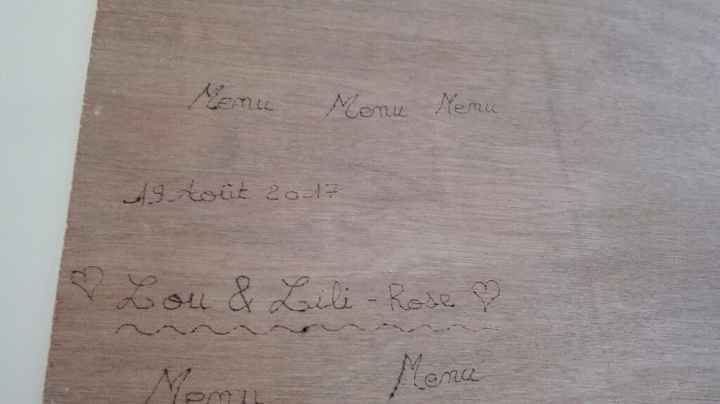 Menu Menu Menu
19 Août 2017
Lou & Lili-Rose
Menu Menu